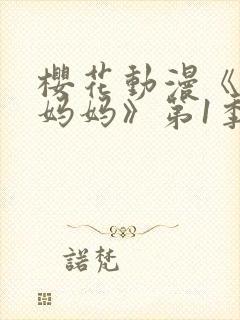 櫻花動漫《
妈妈》第1季
諾梵